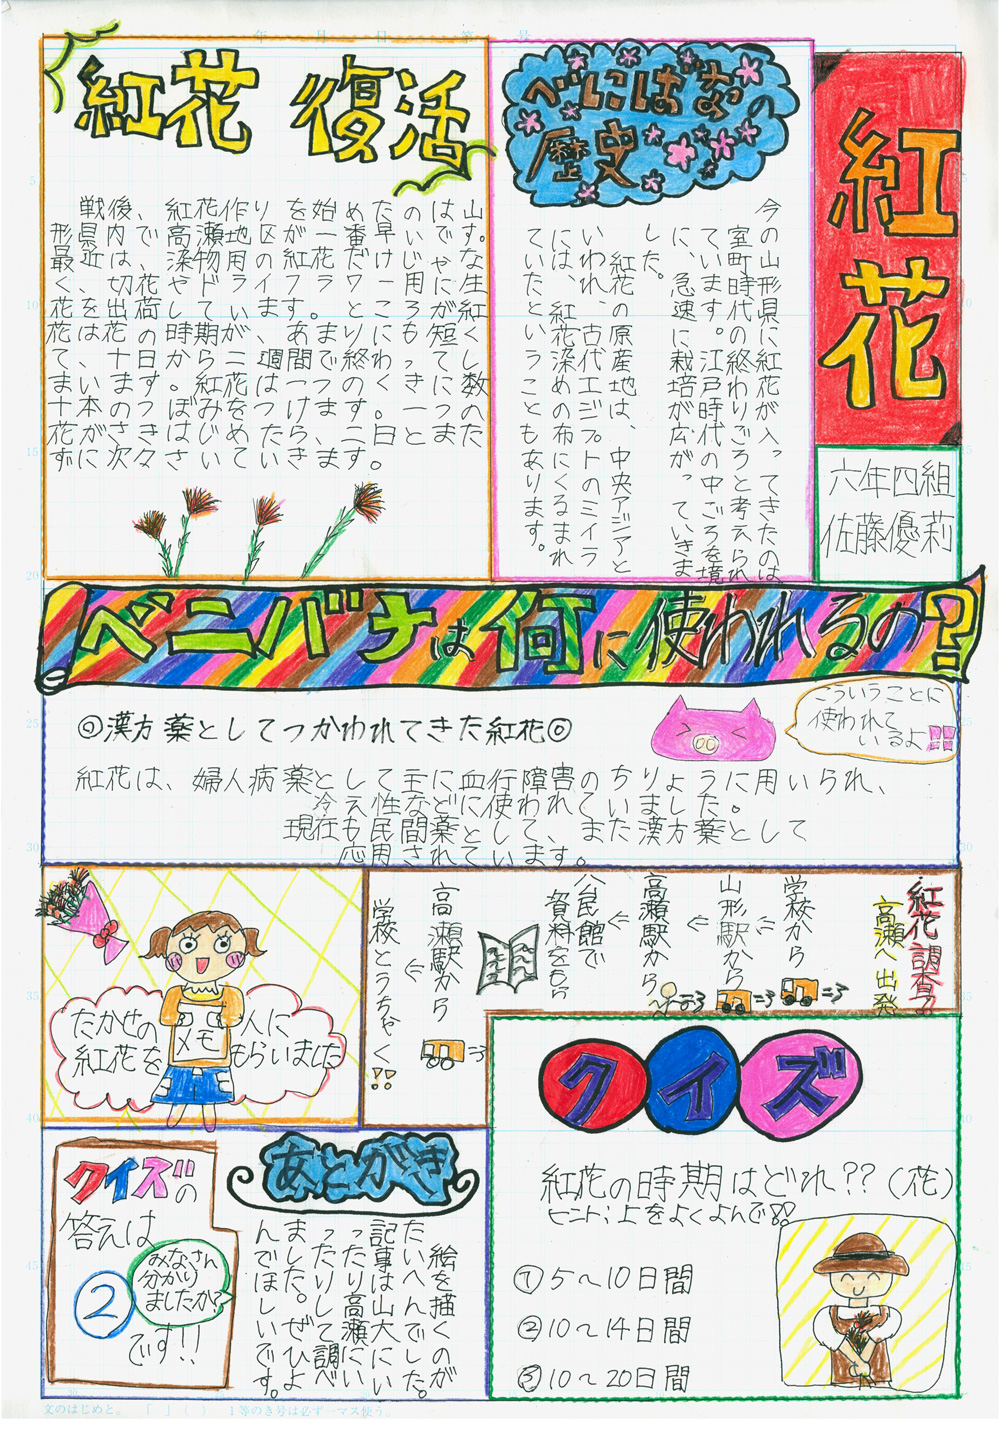 年 月 日 第 号
紅花
六年四組
佐藤優莉
べにばなの
歴史
今の山形県に紅花が入ってきたのは
室町時代の終わりごろと考えられ
ています。江戸時代の中ごろを境
に、急速に栽培が広がっていきま
した。
紅花の原産地は、中央アジアと
いわれ、古代エジプトのミイラ
には、紅花染めの布にくるまれ
ていたということもあります。
紅花 復活
戦後、紅花作りを始めたのは山
形県内で、高瀬地区が一番早いです。
最近は、染物用の紅花だけじゃな
く、切花やドライフラワー用に生
花を出荷しています。ところが紅
花は花の時期が、あまりにも短く
て、十日から二週間で終わってし
まいます。紅花は一つのくきに数
十本のつぼみをつけます。一つ
花がさきはじめたら、二日とまた
ずに次々さいていきます。
ベニバナは何に使われるの?
◎漢方薬としてつかわれてきた紅花◎
こういうことに
使われて
いるよ!!
紅花は、婦人病薬として主に血行障害のちりょうに用いられ、
冷え性などに使われていました。
現在も民間薬として、また漢方薬として
応用されています。
紅花調査
高瀬へ出発
学校から
⇐
山形駅から
⇐
高瀬駅から
⇐
公民館で
資料をもら
高瀬駅から
⇐
学校とうちゃく!!
たかせの人に
紅花をもらいました
メモ
クイズ
紅花の時期はどれ??(花)
ヒント:上をよくよんで!?
①5〜10日間
②10〜14日間
③10〜20日間
あとがき
絵を描くのが
たいへんでした。
記事は山大にい
ったり高瀬にい
ったりして調べ
ました。ぜひよ
んでほしいです。
クイズの
答えは
②
みなさん
分かり
ましたか?
です!!
文のはじめと。「 」( ) 1等のき号は必ず一マス使う。